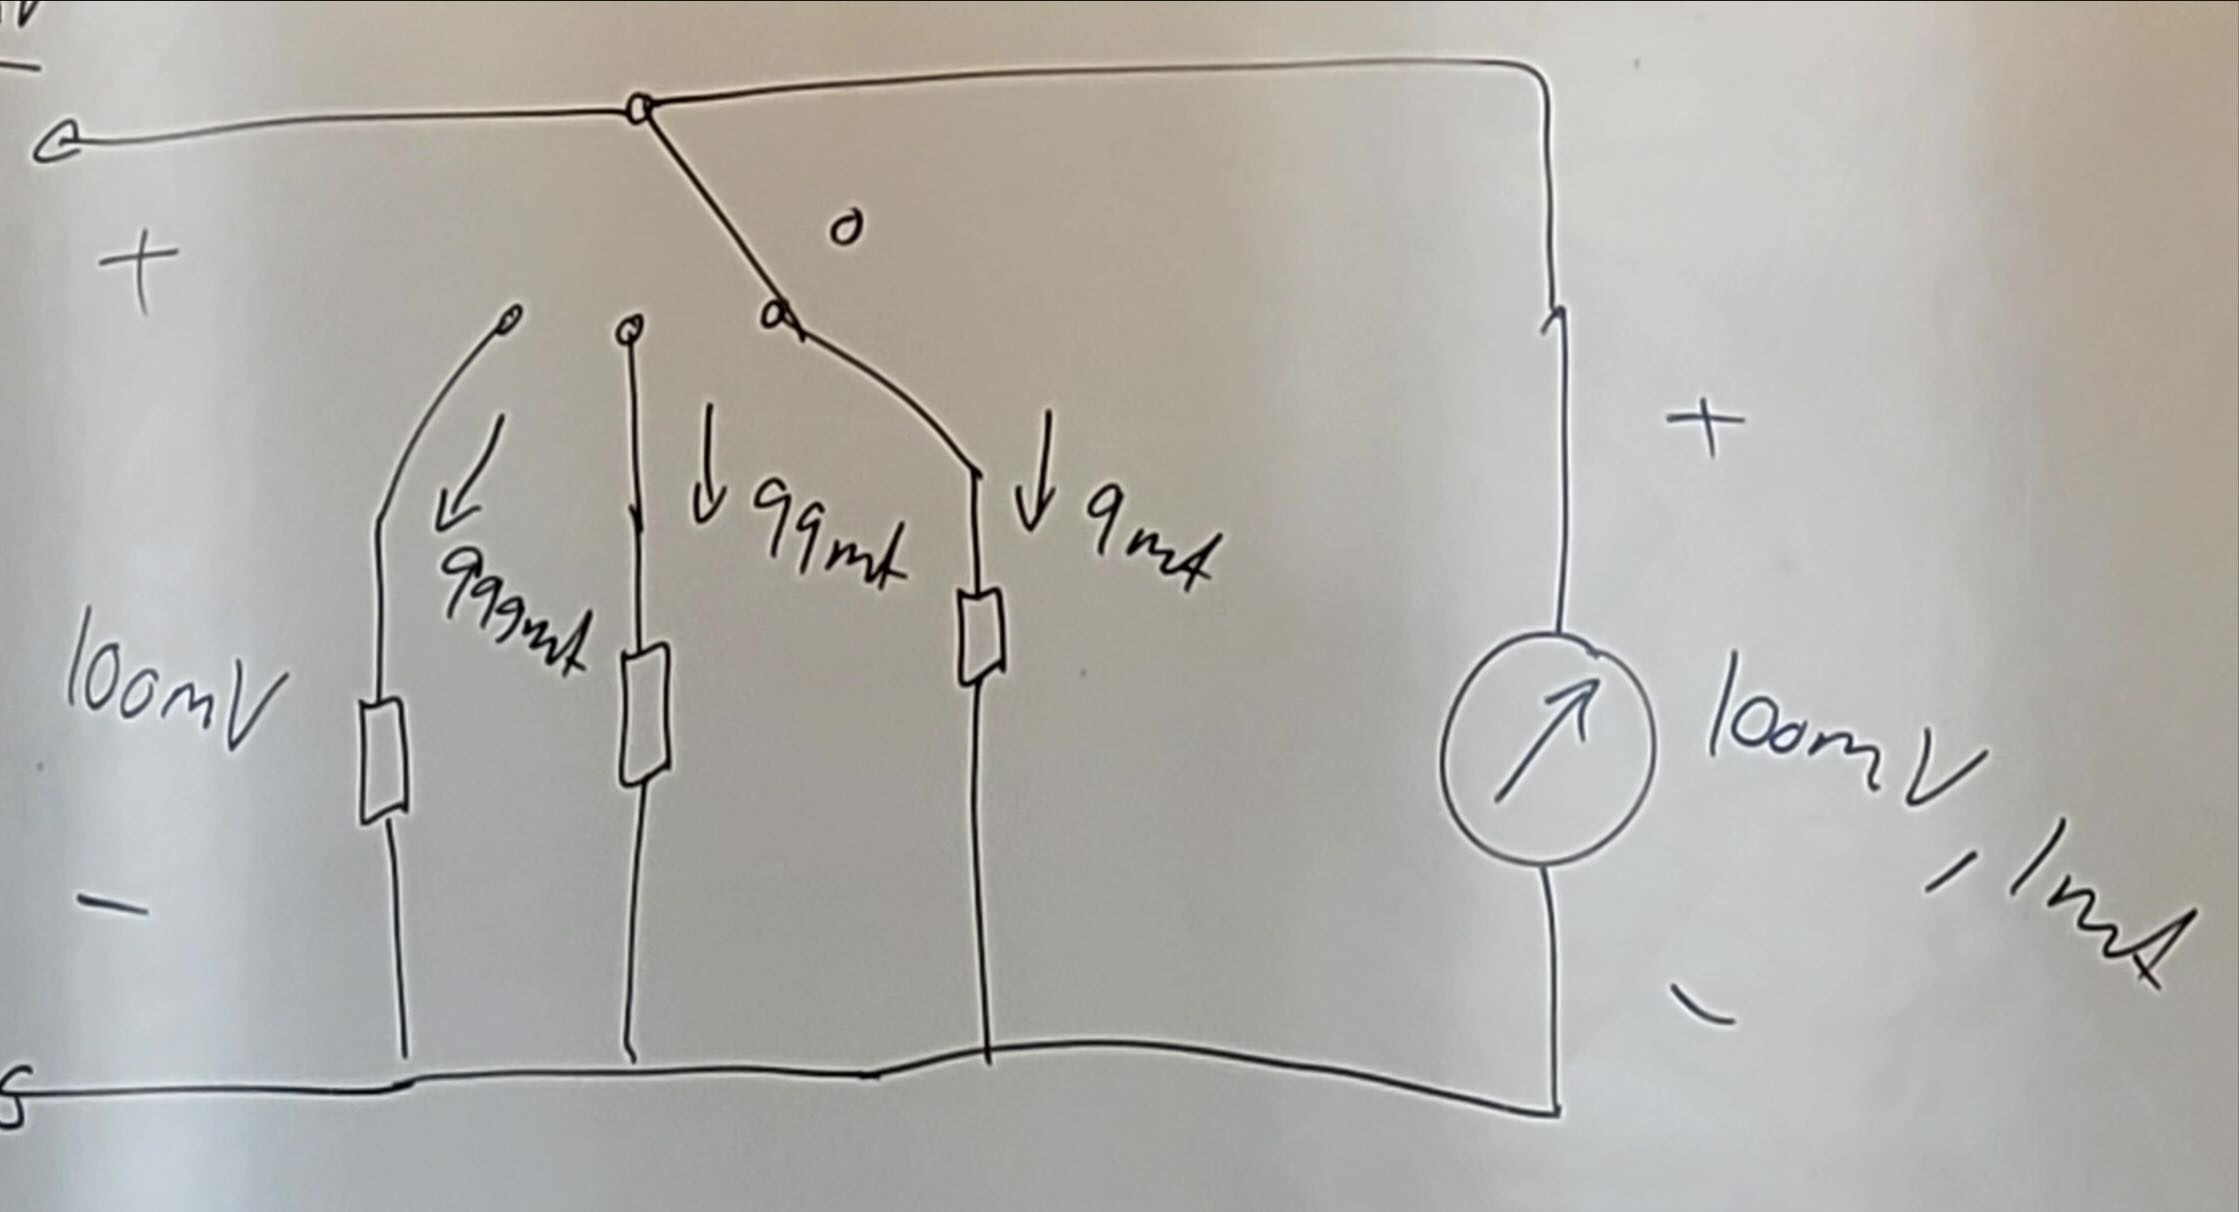 +
100mV
-
999mA
99mA
9mA
+
100mV, 1mA
-